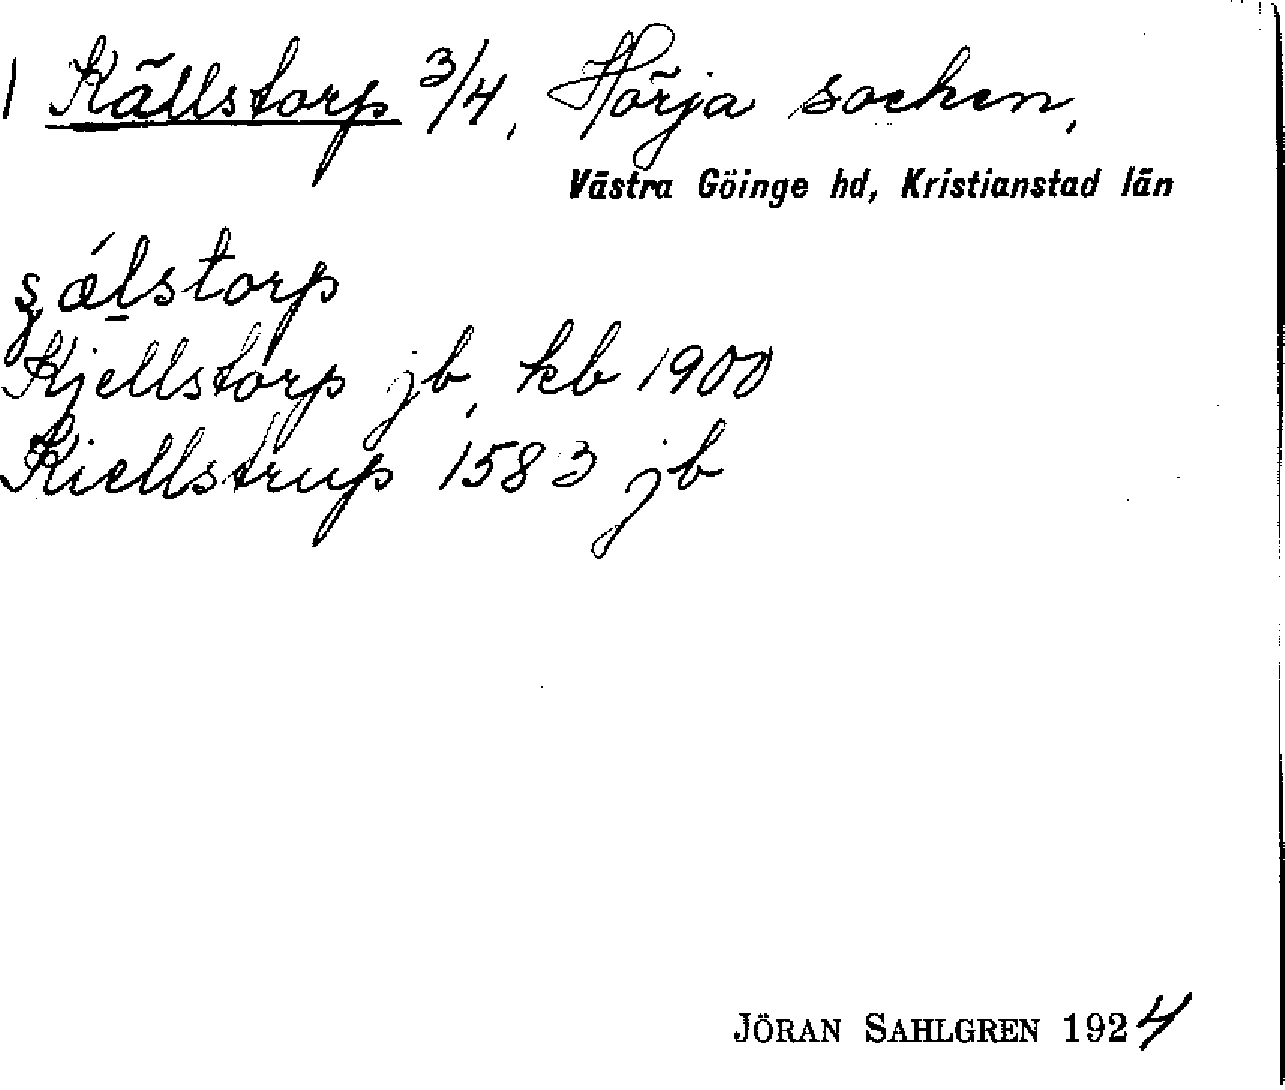 1 Källstorp 3/4, Hörja socken,
Västra Göinge hd, Kristianstad län
ʂǽlstorp
Kjellstorp jb, kb 1900
Kiellstrup 1583 jb
JÖRAN SAHLGREN 1924